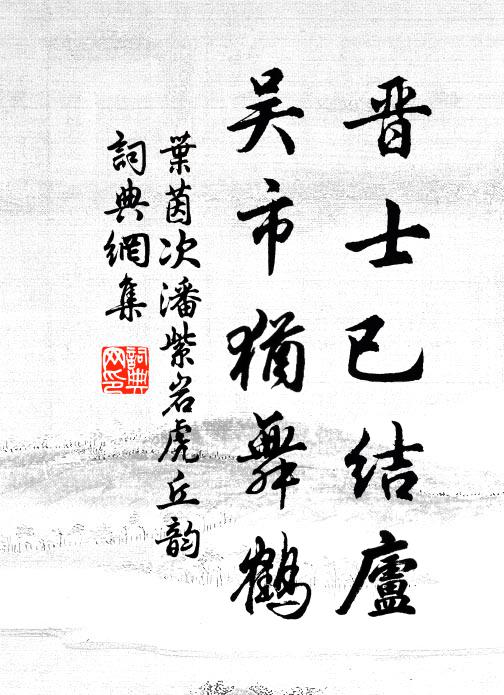 晋士已结庐
吴市犹舞鹤
葉茵次潘紫岩虎丘韵
詞典網集
詞典网印